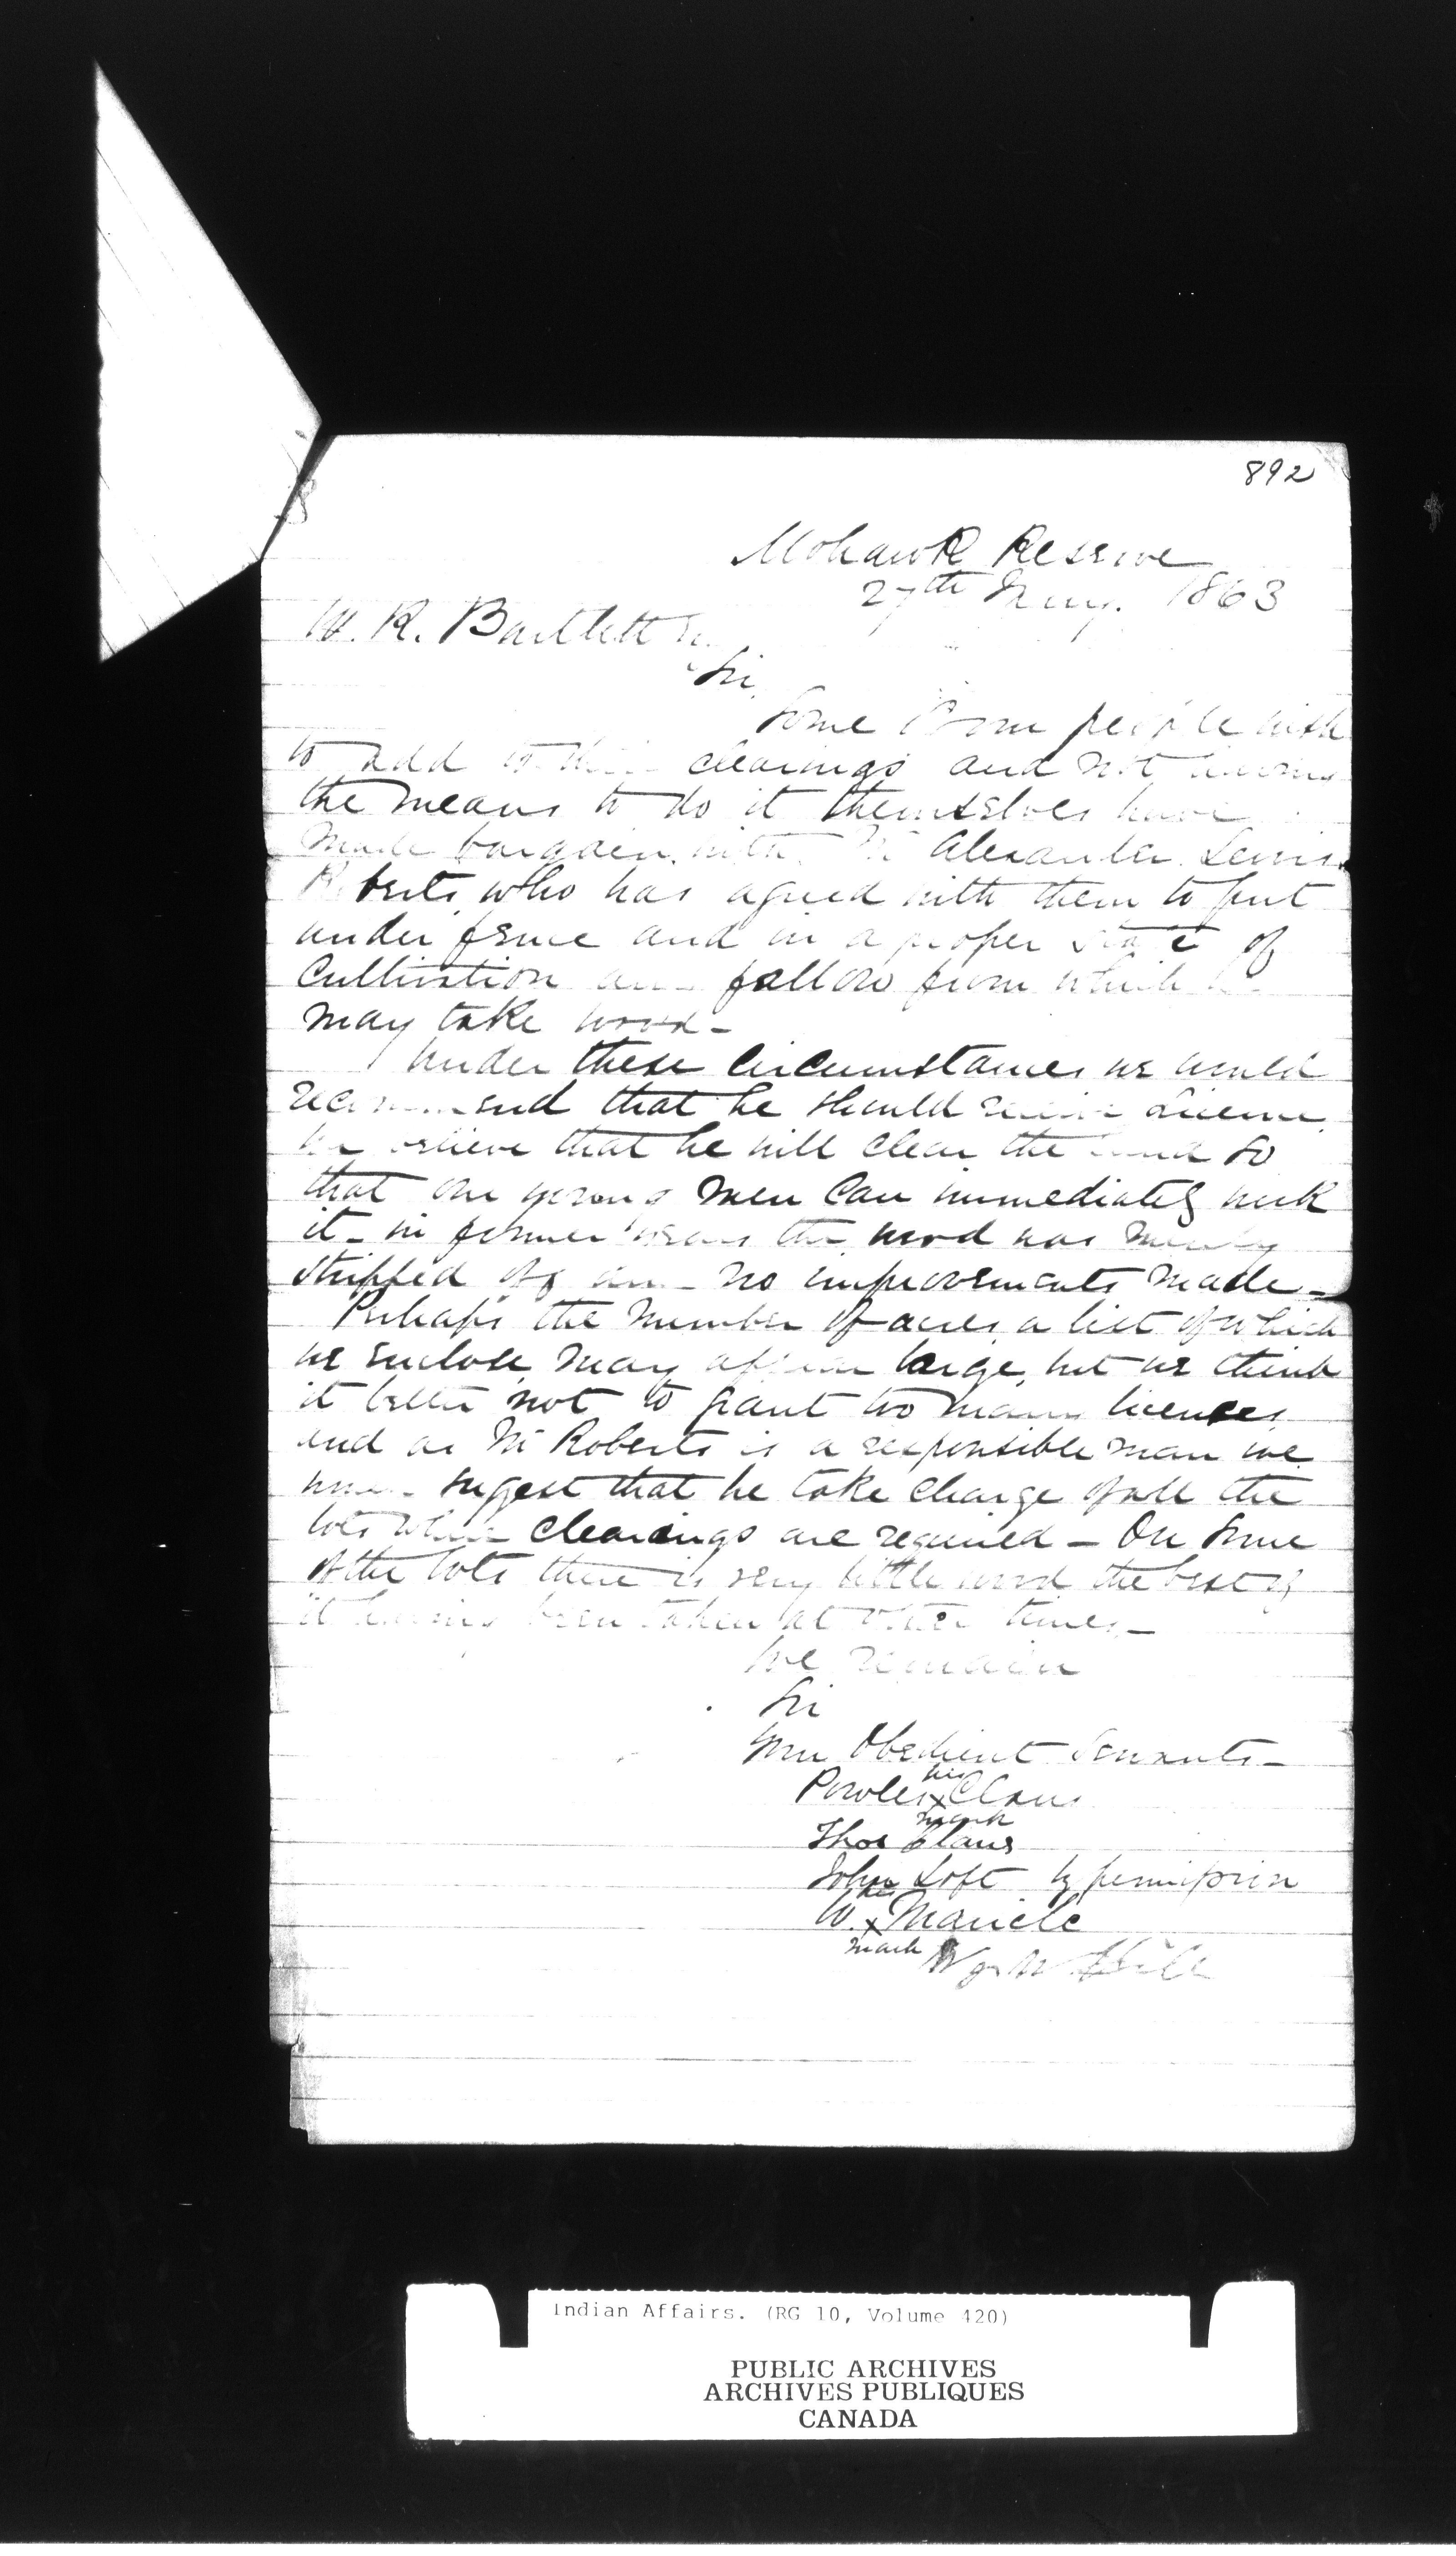 892
Mohawk Reserve
27th 1863
W. R. Bartlett
Sir
Some of our people wish
to add to their clearings and not having
the means to do it themselves have
made bargain with Mr Alexander Lewis
Roberts who has agreed with them to put
under fence and in a proper state of
Cultivation and fallow from which he
may take wood -
Under these Circumstances we would
recommend that he should receive license
We believe that he will clear the land so
that our young men Can immediately work
it - in former years the wood was merely
stripped off and no improvements made -
Perhaps the number of acres a list of which
we enclose may appear large, but we think
it better not to grant too many licenses
and as Mr Roberts is a responsible man we
suggest that he take charge of all the
lots where clearings are required - On some
of the lots there is very little wood the best of
it having been taken at other times -
We remain
Sir
Your Obedient Servants -
Powles his x mark Claus
Thos Claus
John Loft by permission
W. his x mark Maricle
Hill
Indian Affairs. (RG 10, Volume 420)
PUBLIC ARCHIVES
ARCHIVES PUBLIQUES
CANADA